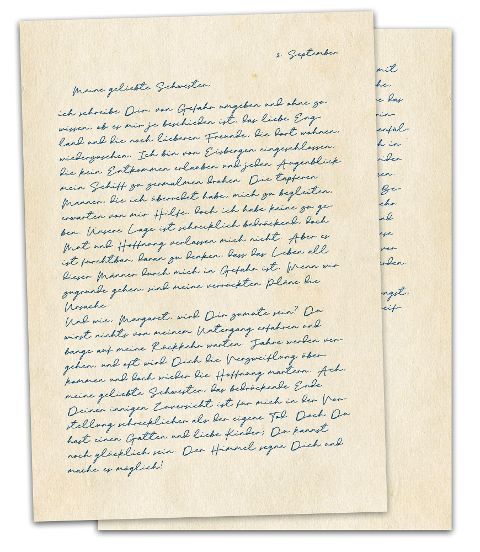 2. September
Meine geliebte Schwester,
ich schreibe Dir, von Gefahr umgeben und ohne zu
wissen, ob es mir je beschieden ist, das liebe Eng-
land und die noch lieberen Freunde, die dort wohnen,
wiederzusehen. Ich bin von Eisbergen eingeschlossen,
die kein Entkommen erlauben und jeden Augenblick
mein Schiff zu zermalmen drohen. Die tapferen
Männer, die ich überredet habe, mich zu begleiten,
erwarten von mir Hilfe, doch ich habe keine zu ge-
ben. Unsere Lage ist schrecklich bedrückend, doch
Mut und Hoffnung verlassen mich nicht. Aber es
ist furchtbar, daran zu denken, dass das Leben all
dieser Männer durch mich in Gefahr ist. Wenn wir
zugrunde gehen, sind meine verrückten Pläne die
Ursache.
Und wie, Margaret, wird Dir zumute sein? Du
wirst nichts von meinem Untergang erfahren und
bange auf meine Rückkehr warten. Jahre werden ver-
gehen, und oft wird Dich die Verzweiflung über-
kommen und doch wieder die Hoffnung martern. Ach,
meine geliebte Schwester, das bedrückende Ende
Deiner innigen Zuversicht ist für mich in der Vor-
stellung schrecklicher als der eigene Tod. Doch Du
hast einen Gatten und liebe Kinder; Du kannst
noch glücklich sein. Der Himmel segne Dich und
mache es möglich!
mit
das
in